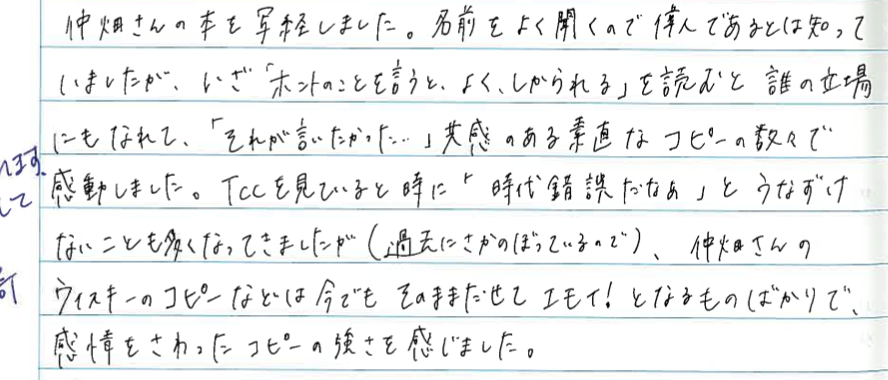 仲畑さんの本を写経しました。名前をよく聞くので偉人であるとは知って
いましたが、いざ「ホントのことを言うと、よく、しかられる」を読むと 誰の立場
にもなれて、「それが言いたかった…」共感のある素直なコピーの数々で
ます。
感動しました。TCCを見ていると時に「時代錯誤だなぁ」とうなずけ
して
ないことも多くなってきましたが(過去にさかのぼっているので)、仲畑さんの
ウィスキーのコピーなどは今でもそのままだせてエモイ!となるものばかりで、
感情をさわったコピーの強さを感じました。